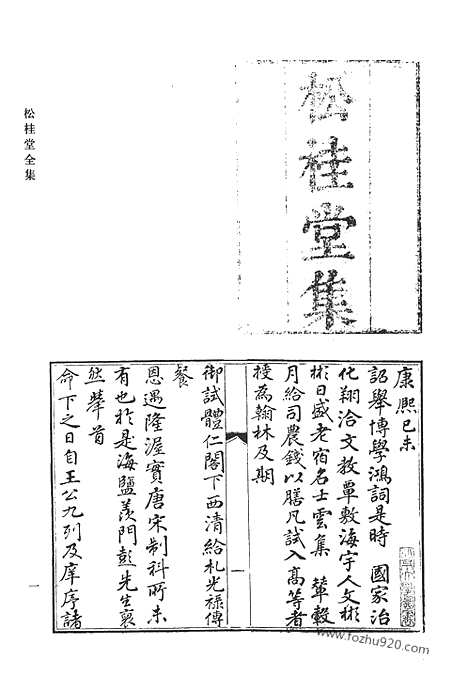 松桂堂全集
松桂堂集
康熙己未
詔舉博學鴻詞是時 國家治
化翔洽文教覃敷海宇人文彬
彬日盛老宿名士雲集 輦轂
月給司農錢以膳凡試入高等者
授為翰林及期
御試體仁閣下西清給札光祿傳
餐
恩遇隆渥實唐宋制科所未
有也於是海鹽羨門彭先生裦
然舉首
命下之日自王公九列及庠序諸
一
一
www.fozhu920.com